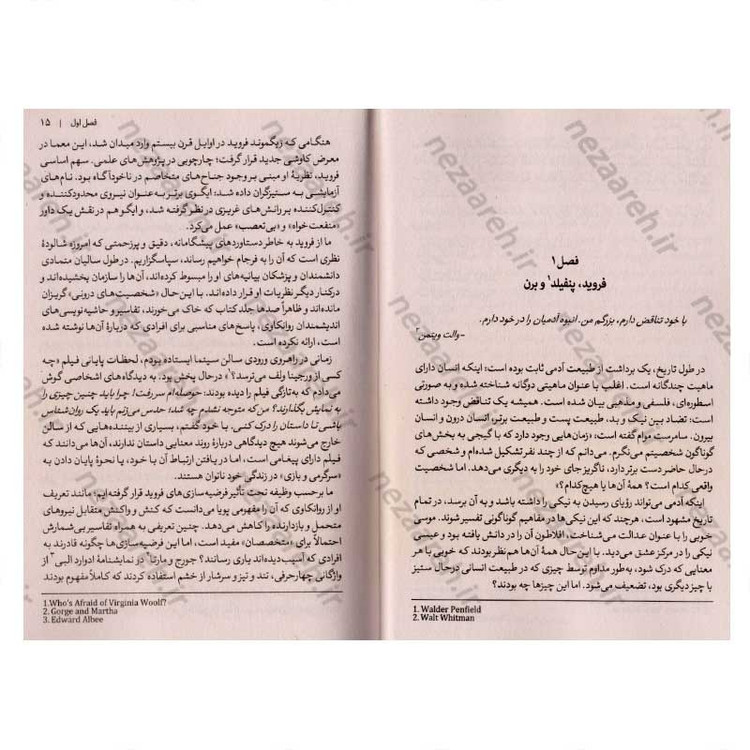 فصل ۱
فروید، پنفیلد۱ و برن
با خود تناقض دارم، بزرگم من. انبوه آدمیان را در خود دارم.
-والت ویتمن۲
در طول تاریخ، یک برداشت از طبیعت آدمی ثابت بوده است: اینکه انسان دارای
ماهیت چندگانه است. اغلب با عنوان ماهیتی دوگانه شناخته شده و به صورتی
اسطوره‌ای، فلسفی و مذهبی بیان شده است. همیشه یک تناقض وجود داشته
است: تضاد بین نیک و بد، طبیعت پست و طبیعت برتر، انسان درون و انسان
بیرون. سامرست موام گفته است: «زمان‌هایی وجود دارد که با گیجی به بخش‌های
گوناگون شخصیتم می‌نگرم. می‌دانم که از چند نفر تشکیل شده‌ام و شخصی که
درحال حاضر دست برتر دارد، ناگریز جای خود را به دیگری می‌دهد. اما شخصیت
واقعی کدام است؟ همهٔ آن‌ها یا هیچ‌کدام؟»
اینکه آدمی می‌تواند رؤیای رسیدن به نیکی را داشته باشد و به آن برسد، در تمام
تاریخ مشهود است، هرچند که این نیکی‌ها در مفاهیم گوناگونی تفسیر شوند. موسی
خوبی را با عنوان عدالت می‌شناخت، افلاطون آن را در دانش یافته بود و عیسی
نیکی را در مرکز عشق می‌دید. با این حال همهٔ آن‌ها هم‌نظر بودند که خوبی با هر
معنایی که درک شود، به‌طور مداوم توسط چیزی که در طبیعت انسانی درحال ستیز
با چیز دیگری بود، تضعیف می‌شود. اما این چیزها چه بودند؟
1. Walder Penfield
2. Walt Whitman
فصل اول | ۱۵
هنگامی که زیگموند فروید در اوایل قرن بیستم وارد میدان شد، این معما در
معرض کاوشی جدید قرار گرفت؛ چارچوبی در پژوهش‌های علمی. سهم اساسی
فروید، نظریهٔ او مبنی بر وجود جناح‌های متخاصم در ناخودآگاه بود. نام‌های
آزمایشی به ستیزگران داده شد: ایگوی برتر به عنوان نیروی محدودکننده و
کنترل‌کننده بر رانش‌های غریزی در نظر گرفته شد، و ایگو هم در نقش یک داور
«منفعت‌خواه» و «بی‌تعصب» عمل می‌کرد.
ما از فروید به خاطر دستاوردهای پیشگامانه، دقیق و پرزحمتی که امروزه شالودهٔ
نظری است که آن را به فرجام خواهیم رساند، سپاسگزاریم. در طول سالیان متمادی
دانشمندان و پزشکان بیانیه‌های او را مبسوط کرده‌اند، آن‌ها را سازمان بخشیده‌اند و
درکنار دیگر نظریات او قرار داده‌اند. با این حال «شخصیت‌های درونی» گریزان
مانده‌اند و ظاهراً صدها جلد کتاب که خاک می‌خورند، تفاسیر و حاشیه‌نویسی‌های
اندیشمندان روانکاوی، پاسخ‌های مناسبی برای افرادی که دربارهٔ آن‌ها نوشته شده
است، ارائه نکرده است.
زمانی در راهروی ورودی سالن سینما ایستاده بودم، لحظات پایانی فیلم «چه
کسی از ورجینا ولف می‌ترسد؟۱» درحال پخش بود. به دیدگاه‌های اشخاصی گوش
می‌دادم که به‌تازگی فیلم را دیده بودند: حوصله‌ام سر رفت! چرا باید چنین چیزی را
به نمایش بگذارند؟ من که متوجه نشدم چه شد؛ حدس می‌زنم باید یک روان‌شناس
باشی تا داستان را درک کنی. با خود گفتم، بسیاری از بیننده‌هایی که از سالن
خارج می‌شوند هیچ دیدگاهی دربارهٔ روند معنایی داستان ندارند، آن‌ها می‌دانند که
فیلم دارای پیغامی است، اما در یافتن ارتباط آن با خود، یا نحوهٔ پایان دادن به
«سرگرمی و بازی» در زندگی خود ناتوان هستند.
ما برحسب وظیفه تحت تأثیر فرضیه‌سازی‌های فروید قرار گرفته‌ایم: مانند تعریف
او از روانکاوی که آن را مفهومی پویا می‌دانست که کنش و واکنش متقابل نیروهای
متحمل و بازدارنده را کاهش می‌دهد. چنین تعریفی به همراه تفاسیر بی‌شمارش
احتمالاً برای «متخصصان» مفید است، اما این فرضیه‌سازی‌ها چگونه قادرند به
افرادی که آسیب‌دیده‌اند یاری رسانند؟ جورج و مارتا۲ در نمایشنامهٔ ادوارد البی۳ از
واژگانی چهارحرفی، تند و تیز و سرشار از خشم استفاده کردند که کاملاً مفهوم بودند
1.Who's Afraid of Virginia Woolf?
2. Gorge and Martha
3. Edward Albee
nezaareh.ir